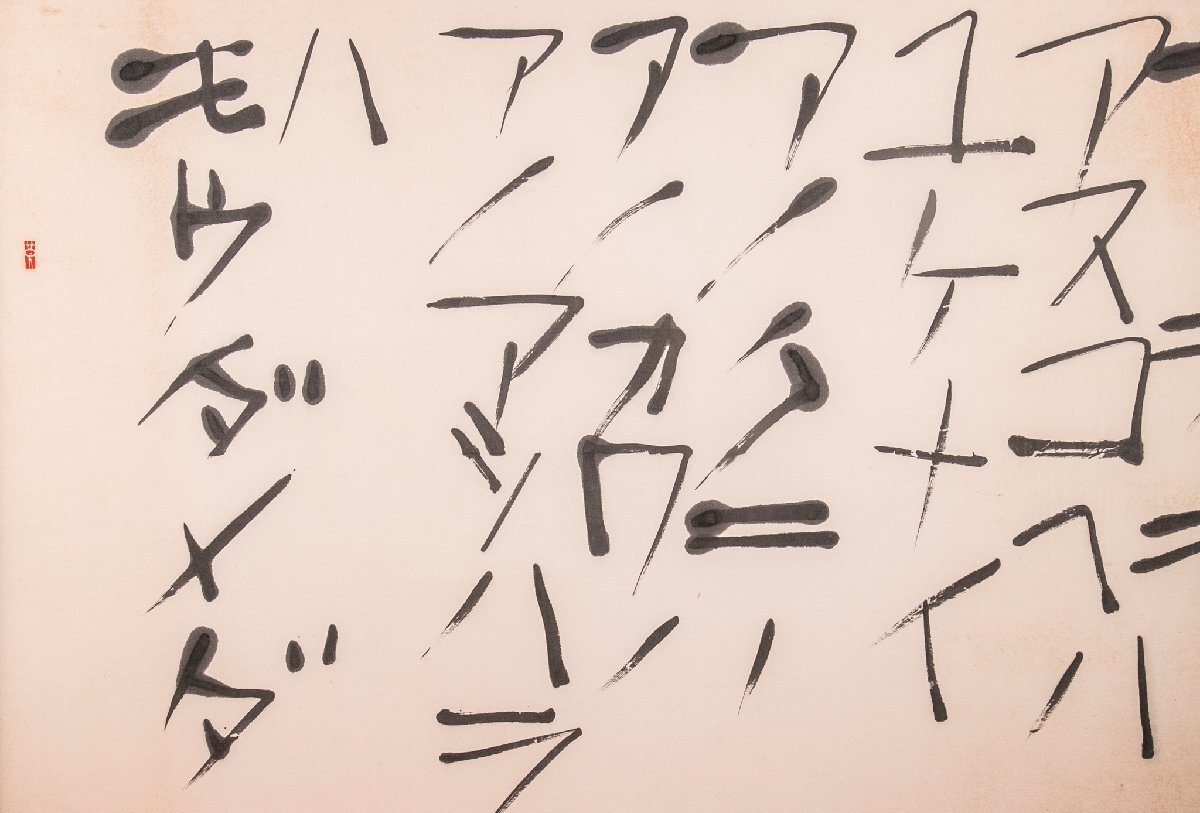 アスコヘハ
ユケメイ
アノクニ
アノカワハ
アノアツハラ
ハ
モウダメダ